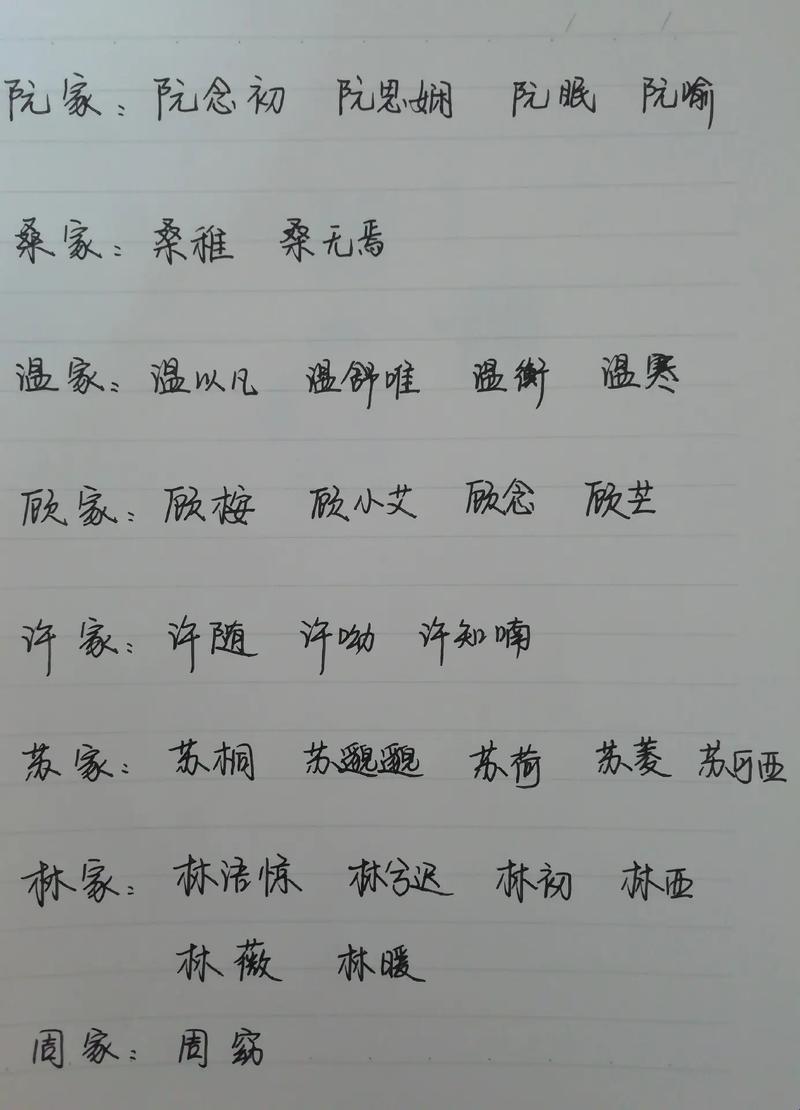 阮家：阮念初 阮思娴 阮眠 阮喻
桑家：桑稚 桑无焉
温家：温以凡 温舒唯 温衡 温寒
顾家：顾桉 顾小艾 顾念 顾芒
许家：许随 许呦 许知喃
苏家：苏桐 苏邈邈 苏荷 苏菱 苏可西
林家：林语惊 林兮迟 林初 林西
林薇 林暖
周家：周窈